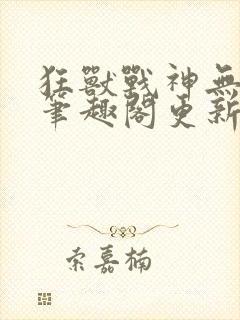 狂獸戰神無
筆趣閣更新
索嘉楠